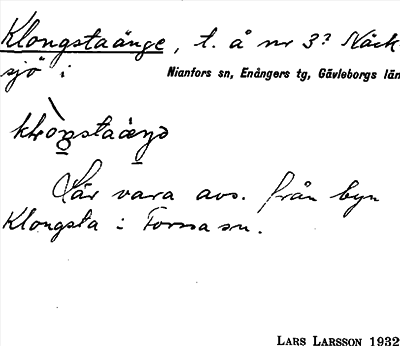 Klongstaänge, t. å nr 3? Näck
sjö i
Nianfors sn, Enångers tg, Gävleborgs län
Lär vara avs. från byn
Klongsta i Forssa sn.
LARS LARSSON 1932